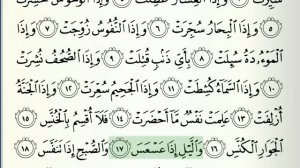 سُيِّرَتۡ وَإِذَا ٱلۡعِشَارُ عُطِّلَتۡ ٤ وَإِذَا ٱلۡوُحُوشُ حُشِرَتۡ
٥ وَإِذَا ٱلۡبِحَارُ سُجِّرَتۡ ٦ وَإِذَا ٱلنُّفُوسُ زُوِّجَتۡ ٧ وَإِذَا
ٱلۡمَوۡءُۥدَةُ سُئِلَتۡ ٨ بِأَيِّ ذَنۢبٖ قُتِلَتۡ ٩ وَإِذَا ٱلصُّحُفُ نُشِرَتۡ
١٠ وَإِذَا ٱلسَّمَآءُ كُشِطَتۡ ١١ وَإِذَا ٱلۡجَحِيمُ سُعِّرَتۡ ١٢ وَإِذَا ٱلۡجَنَّةُ
أُزۡلِفَتۡ ١٣ عَلِمَتۡ نَفۡسٞ مَّآ أَحۡضَرَتۡ ١٤ فَلَآ أُقۡسِمُ بِٱلۡخُنَّسِ ١٥
ٱلۡجَوَارِ ٱلۡكُنَّسِ ١٦ وَٱلَّيۡلِ إِذَا عَسۡعَسَ ١٧ وَٱلصُّبۡحِ إِذَا تَنَفَّسَ ١٨